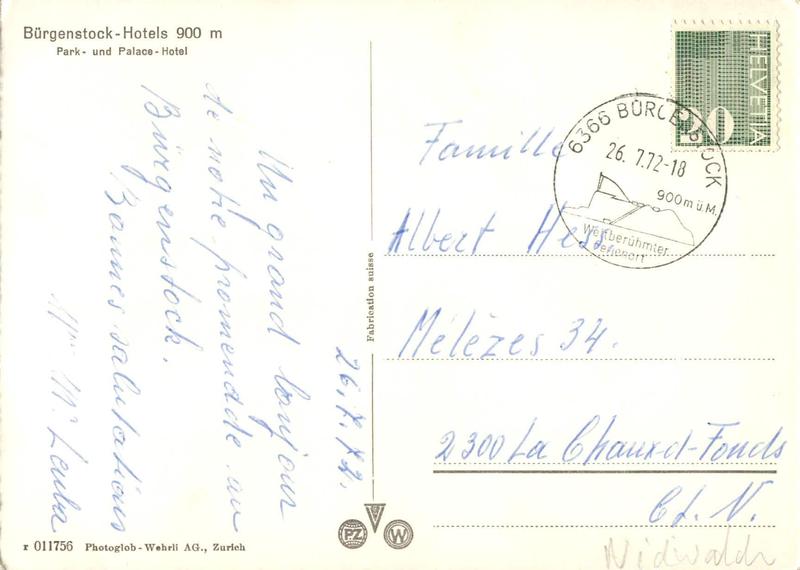 Bürgenstock-Hotels 900 m
Park- und Palace-Hotel
Un grand bonjour
de notre promenade au
Bürgenstock.
Bonnes salutations
26.7.72.
Fabrication suisse
HELVETIA
10
6366 BÜRGENSTOCK
26. 7.72-18
900 m ü. M.
Weltberühmter
Ferienort
Famille
Albert
Mélèzes 34.
2300 La Chaux-d-Fonds
Ct. N.
Nidwalden
r 011756 Photoglob-Wehrli AG., Zurich
PZ
W